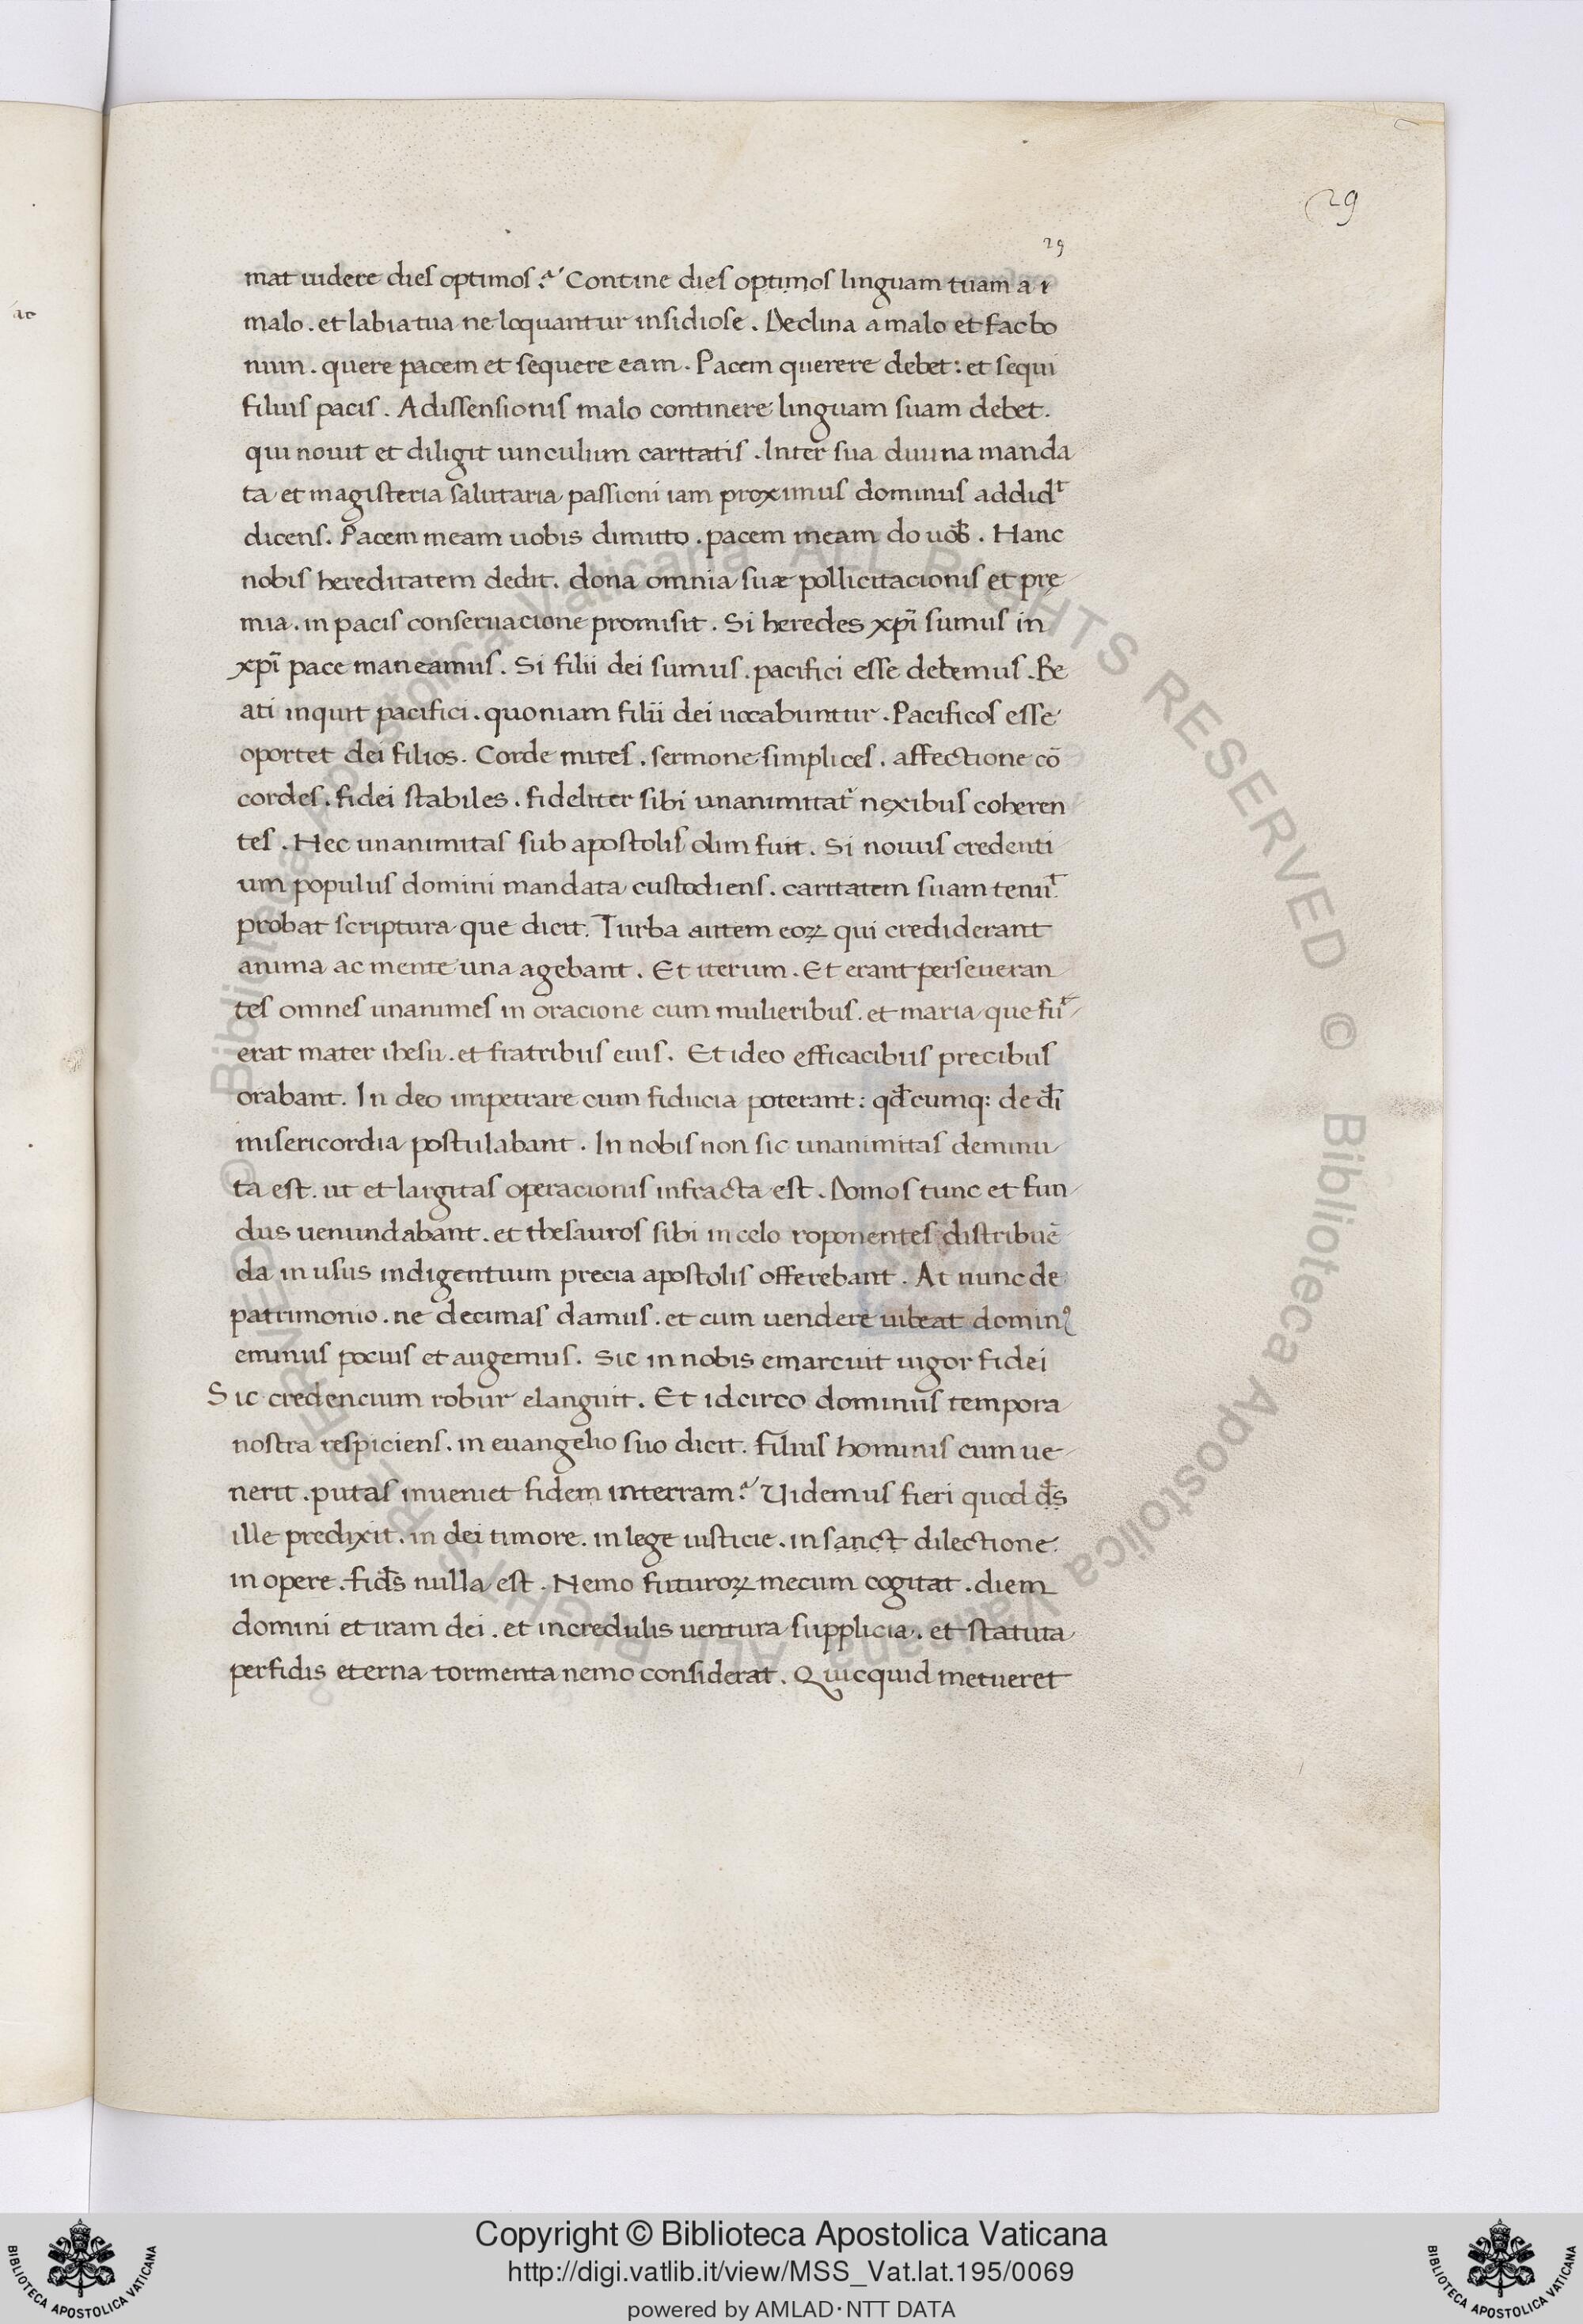 29
29
mat uidere dies optimos? Contine dies optimos linguam tuam a
malo. et labia tua ne loquantur insidiose. Declina a malo et fac bo
num. quere pacem et sequere eam. Pacem querere debet: et sequi
filius pacis. A dissensionis malo continere linguam suam debet.
qui nouit et diligit uinculum caritatis. Inter sua diuina manda
ta et magisteria salutaria passioni iam proximus dominus addidᵗ
dicens. Pacem meam uobis dimitto. pacem meam do uob̄. Hanc
nobis hereditatem dedit. dona omnia suæ pollicitacionis et prę
mia. in pacis conseruacione promisit. Si heredes xp̄i sumus in
xp̄i pace maneamus. Si filii dei sumus. pacifici esse debemus. Be
ati inquit pacifici. quoniam filii dei uocabuntur. Pacificos esse
oportet dei filios. Corde mites. sermone simplices. affectione cō
cordes. fidei stabiles. fideliter sibi unanimitatⁱ nexibus coheren
tes. Hec unanimitas sub apostolis olim fuit. Si nouus credenti
um populus domini mandata custodiens. caritatem suam tenuᵗ.
probat scriptura que dicit. Turba autem eoꝝ qui crediderant
anima ac mente una agebant. Et iterum. Et erant perseueran
tes omnes unanimes in oracione cum mulieribus. et maria que fuᵗ
erat mater ihesu. et fratribus eius. Et ideo efficacibus precibus
orabant. In deo impetrare cum fiducia poterant: qđcumq: de dī
misericordia postulabant. In nobis non sic unanimitas deminu
ta est. ut et largitas operacionis infracta est. Domos tunc et fun
dus uenundabant. et thesauros sibi in celo roponentes distribuē
da in usus indigentium precia apostolis offerebant. At nunc de
patrimonio. ne decimas damus. et cum uendere iubeat dominꝰ
eminus pocius et augemus. Sic in nobis emarcuit uigor fidei
Sic credencium robur elanguit. Et idcirco dominus tempora
nostra respiciens. in euangelio suo dicit. filius hominis cum ue
nerit. putas inueniet fidem in terram? Uidemus fieri quod d̄s
ille predixit. in dei timore. in lege iusticie. in sanct dilectione.
in opere. fid̄s nulla est. Nemo futuroꝝ mecum cogitat. diem
domini et iram dei. et incredulis uentura supplicia. et statuta
perfidis eterna tormenta nemo considerat. Quicquid metueret
© Biblioteca Apostolica Vaticana ALL RIGHTS RESERVED
Copyright © Biblioteca Apostolica Vaticana
http://digi.vatlib.it/view/MSS_Vat.lat.195/0069
powered by AMLAD·NTT DATA
BIBLIOTECA APOSTOLICA VATICANA
BIBLIOTECA APOSTOLICA VATICANA